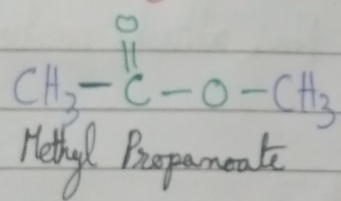 O
||
CH₃ - C - O - CH₃
Methyl Propanoate